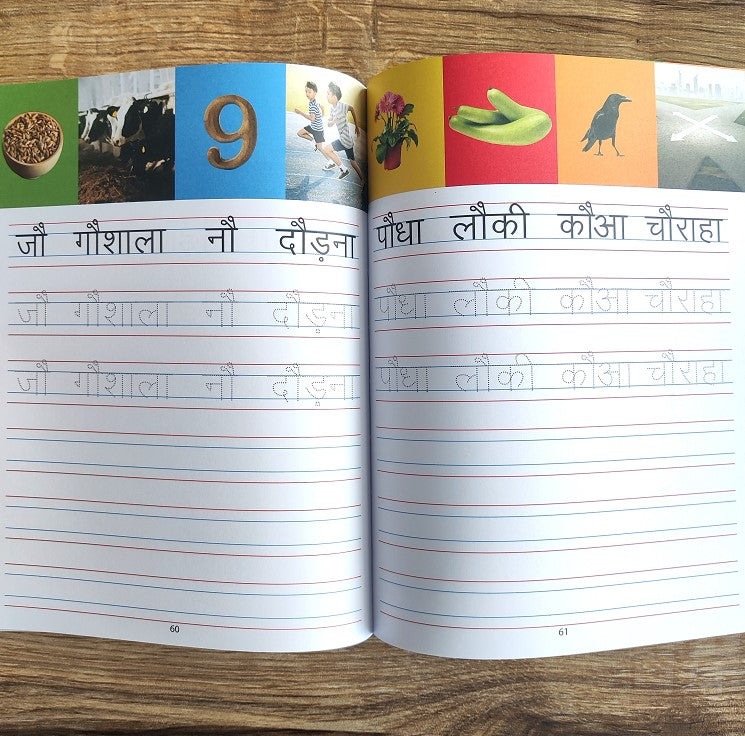 9
जौ गौशाला नौ दौड़ना
जौ गौशाला नौ दौड़ना
जौ गौशाला नौ दौड़ना
60
पौधा लौकी कौआ चौराहा
पौधा लौकी कौआ चौराहा
पौधा लौकी कौआ चौराहा
61